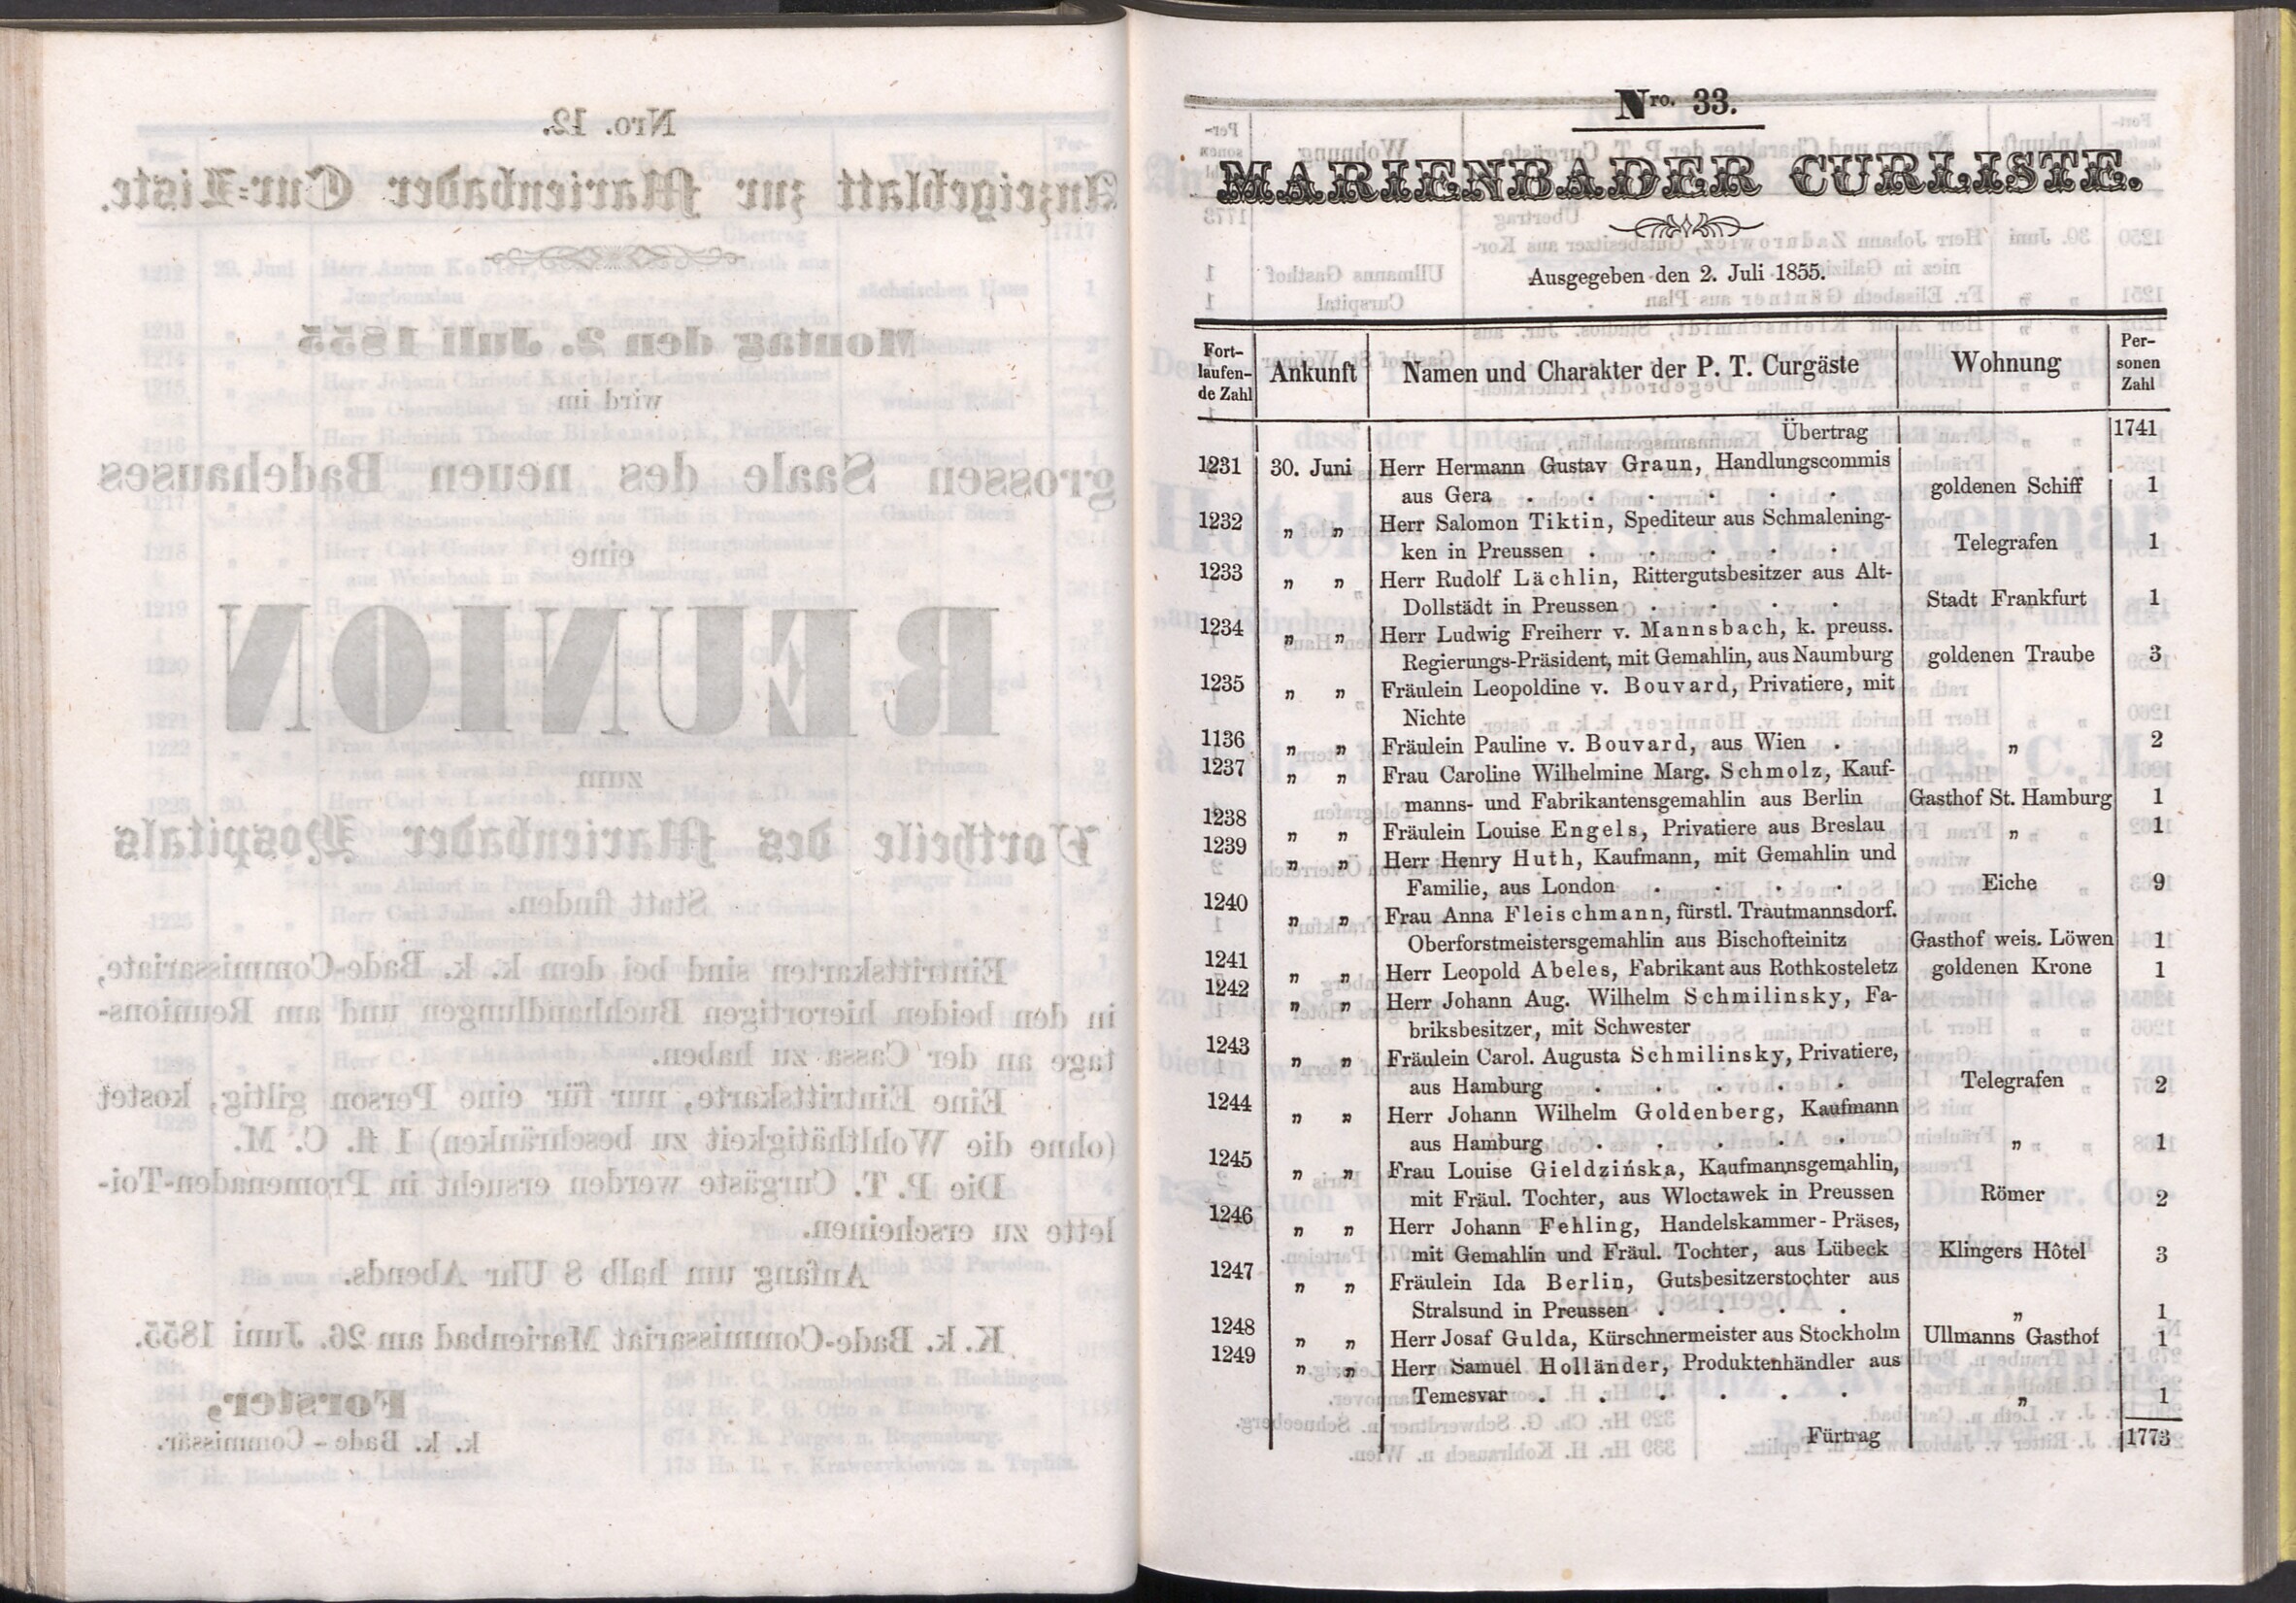 Nro. 12.
Anzeigeblatt zur Marienbader Cur-Liste.
Montag den 2. Juli 1855
wird im
grossen Saale des neuen Badehauses
eine
REUNION
zum
Vortheile des Marienbader Hospitals
Statt finden.
Eintrittskarten sind bei dem k. k. Bade-Commissariate,
in den beiden hierortigen Buchhandlungen und am Reunions-
tage an der Cassa zu haben.
Eine Eintrittskarte, nur für eine Person giltig, kostet
(ohne die Wohlthätigkeit zu beschränken) 1 fl. C. M.
Die P. T. Curgäste werden ersucht in Promenaden-Toi-
lette zu erscheinen.
Anfang um halb 8 Uhr Abends.
K. k. Bade-Commissariat Marienbad am 26. Juni 1855.
Forster,
k. k. Bade-Commissär.
Nro. 33.
MARIENBADER CURLISTE.
Ausgegeben den 2. Juli 1855.
Fort-laufen-de Zahl Ankunft Namen und Charakter der P. T. Curgäste Wohnung Per-sonen Zahl
Übertrag 1741
1231 30. Juni Herr Hermann Gustav Graun, Handlungscommis
aus Gera . . . . . . goldenen Schiff 1
1232 „ „ Herr Salomon Tiktin, Spediteur aus Schmalening-
ken in Preussen . . . . . Telegrafen 1
1233 „ „ Herr Rudolf Lächlin, Rittergutsbesitzer aus Alt-
Dollstädt in Preussen . . . . Stadt Frankfurt 1
1234 „ „ Herr Ludwig Freiherr v. Mannsbach, k. preuss.
Regierungs-Präsident, mit Gemahlin, aus Naumburg goldenen Traube 3
1235 „ „ Fräulein Leopoldine v. Bouvard, Privatiere, mit
Nichte
1136 „ „ Fräulein Pauline v. Bouvard, aus Wien . „ 2
1237 „ „ Frau Caroline Wilhelmine Marg. Schmolz, Kauf-
manns- und Fabrikantensgemahlin aus Berlin Gasthof St. Hamburg 1
1238 „ „ Fräulein Louise Engels, Privatiere aus Breslau „ 1
1239 „ „ Herr Henry Huth, Kaufmann, mit Gemahlin und
Familie, aus London . . . . Eiche 9
1240 „ „ Frau Anna Fleischmann, fürstl. Trautmannsdorf.
Oberforstmeistersgemahlin aus Bischofteinitz Gasthof weis. Löwen 1
1241 „ „ Herr Leopold Abeles, Fabrikant aus Rothkosteletz goldenen Krone 1
1242 „ „ Herr Johann Aug. Wilhelm Schmilinsky, Fa-
briksbesitzer, mit Schwester
1243 „ „ Fräulein Carol. Augusta Schmilinsky, Privatiere,
aus Hamburg . . . . . Telegrafen 2
1244 „ „ Herr Johann Wilhelm Goldenberg, Kaufmann
aus Hamburg . . . . . „ 1
1245 „ „ Frau Louise Gieldzińska, Kaufmannsgemahlin,
mit Fräul. Tochter, aus Wloctawek in Preussen Römer 2
1246 „ „ Herr Johann Fehling, Handelskammer-Präses,
mit Gemahlin und Fräul. Tochter, aus Lübeck Klingers Hôtel 3
1247 „ „ Fräulein Ida Berlin, Gutsbesitzerstochter aus
Stralsund in Preussen . . . . „ 1
1248 „ „ Herr Josaf Gulda, Kürschnermeister aus Stockholm Ullmanns Gasthof 1
1249 „ „ Herr Samuel Holländer, Produktenhändler aus
Temesvar . . . . . . „ 1
Fürtrag 1773